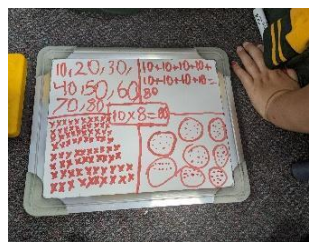 10, 20, 30,
40, 50, 60
70, 80
10+10+10+10+
10+10+10+10=
80
10x8=80